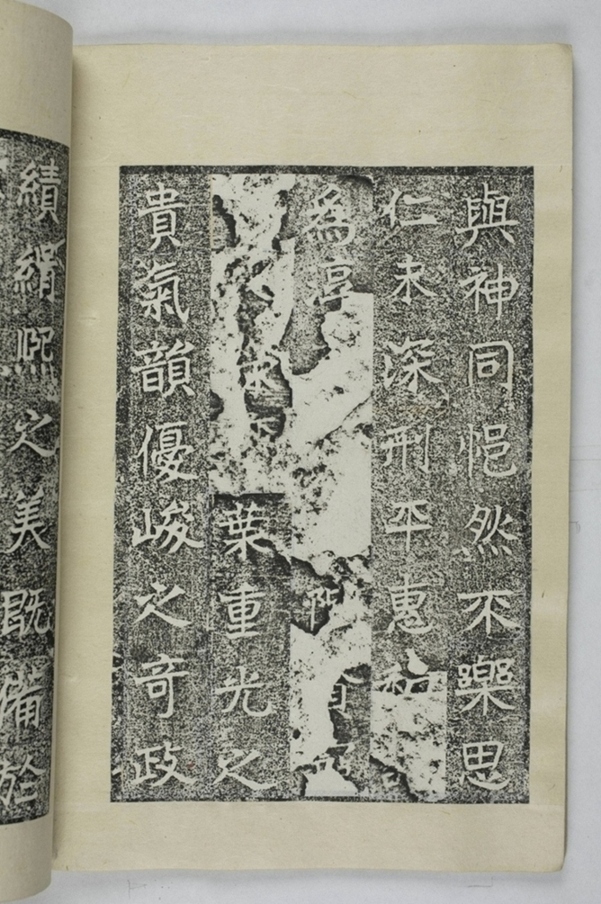 與神同悒然不樂思
仁未深刑平惠和
為百
葉重光之
貴氣韻優峻之奇政
績緝熙之美既備於